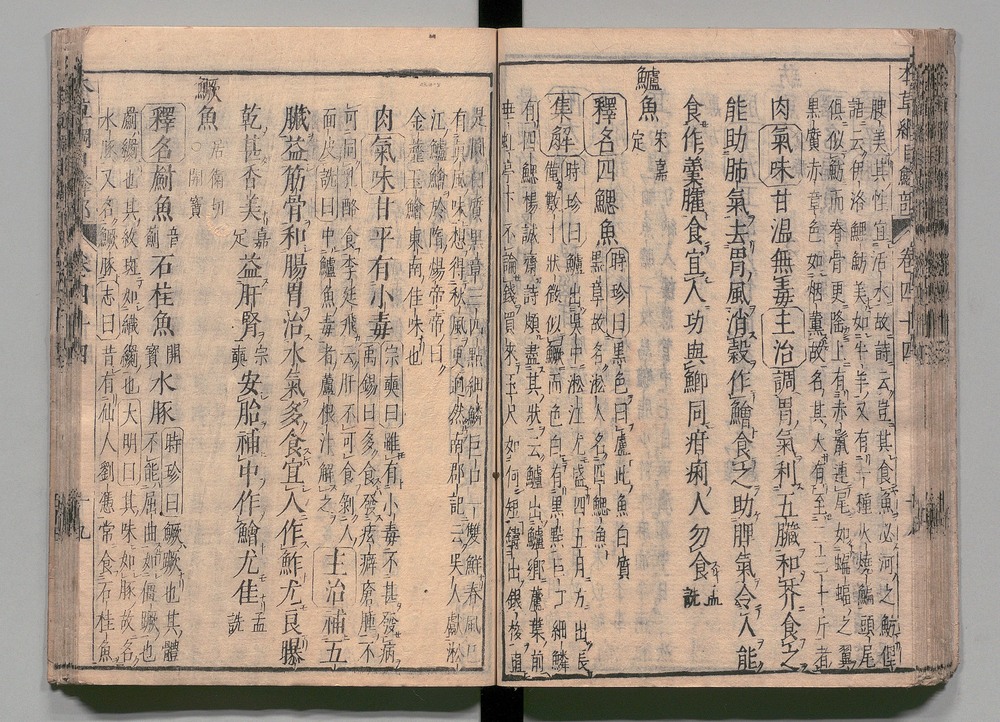 腴美其性宜活水故詩云豈其食魚必河之魴俚
語云伊洛鯉魴美如牛羊又有一種火燒鯿頭尾
俱似魴而脊骨更隆上有赤鬣連尾如蝙蝠之翼
黑質赤章色如烟薰故名其大有至二三十斤者
肉氣味甘温無毒主治調胃氣利五臟和芥食之
能助肺氣去胃風消穀作鱠食之助脾氣令人能
食作羹臛食宜人功與鯽同疳痢人勿食孟詵
鱸魚宋嘉定
釋名四鰓魚時珍曰黑色曰盧此魚白質
黑章故名淞人名四鰓魚
集解時珍曰鱸出吳中淞江尤盛四五月方出長
僅數寸狀微似鱖而色白有黑點巨口細鱗
有四鰓楊誠齋詩頗盡其狀云鱸出鱸鄉蘆葉前
垂虹亭下不論錢買來玉尺如何短鑄出銀梭直
是圓白質黑章三四點細鱗巨口一雙鮮春風
有風味想得秋風更逈然南郡記云吳人獻淞
江鱸鱠於隋煬帝帝曰
金虀玉鱠東南佳味也
肉氣味甘平有小毒宗奭曰雖有小毒不甚發病
禹錫曰多食發痃癖瘡腫不
可同乳酪食李廷飛云肝不可食剝人
面皮詵曰中鱸魚毒者蘆根汁解之主治補五
臟益筋骨和腸胃治水氣多食宜人作鮓尤良曝
乾甚香美嘉定益肝腎宗奭安胎補中作鱠尤佳孟詵
鱖魚居衛切開寶
釋名罽魚音薊石桂魚開寶水豚時珍曰鱖蹶也其體
不能屈曲如僵蹶也
罽𦇧也其紋斑如織𦇧也大明曰其味如豚故名
水豚又名鱖豚志曰昔有仙人劉憑常食石桂魚
本草綱目鱗部 卷四十四
卷四十四 十九